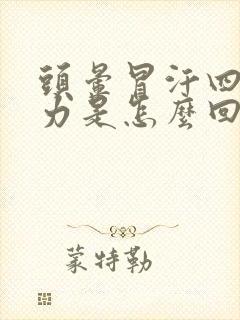 頭暈冒汗四
力是怎麼回
蒙特勒